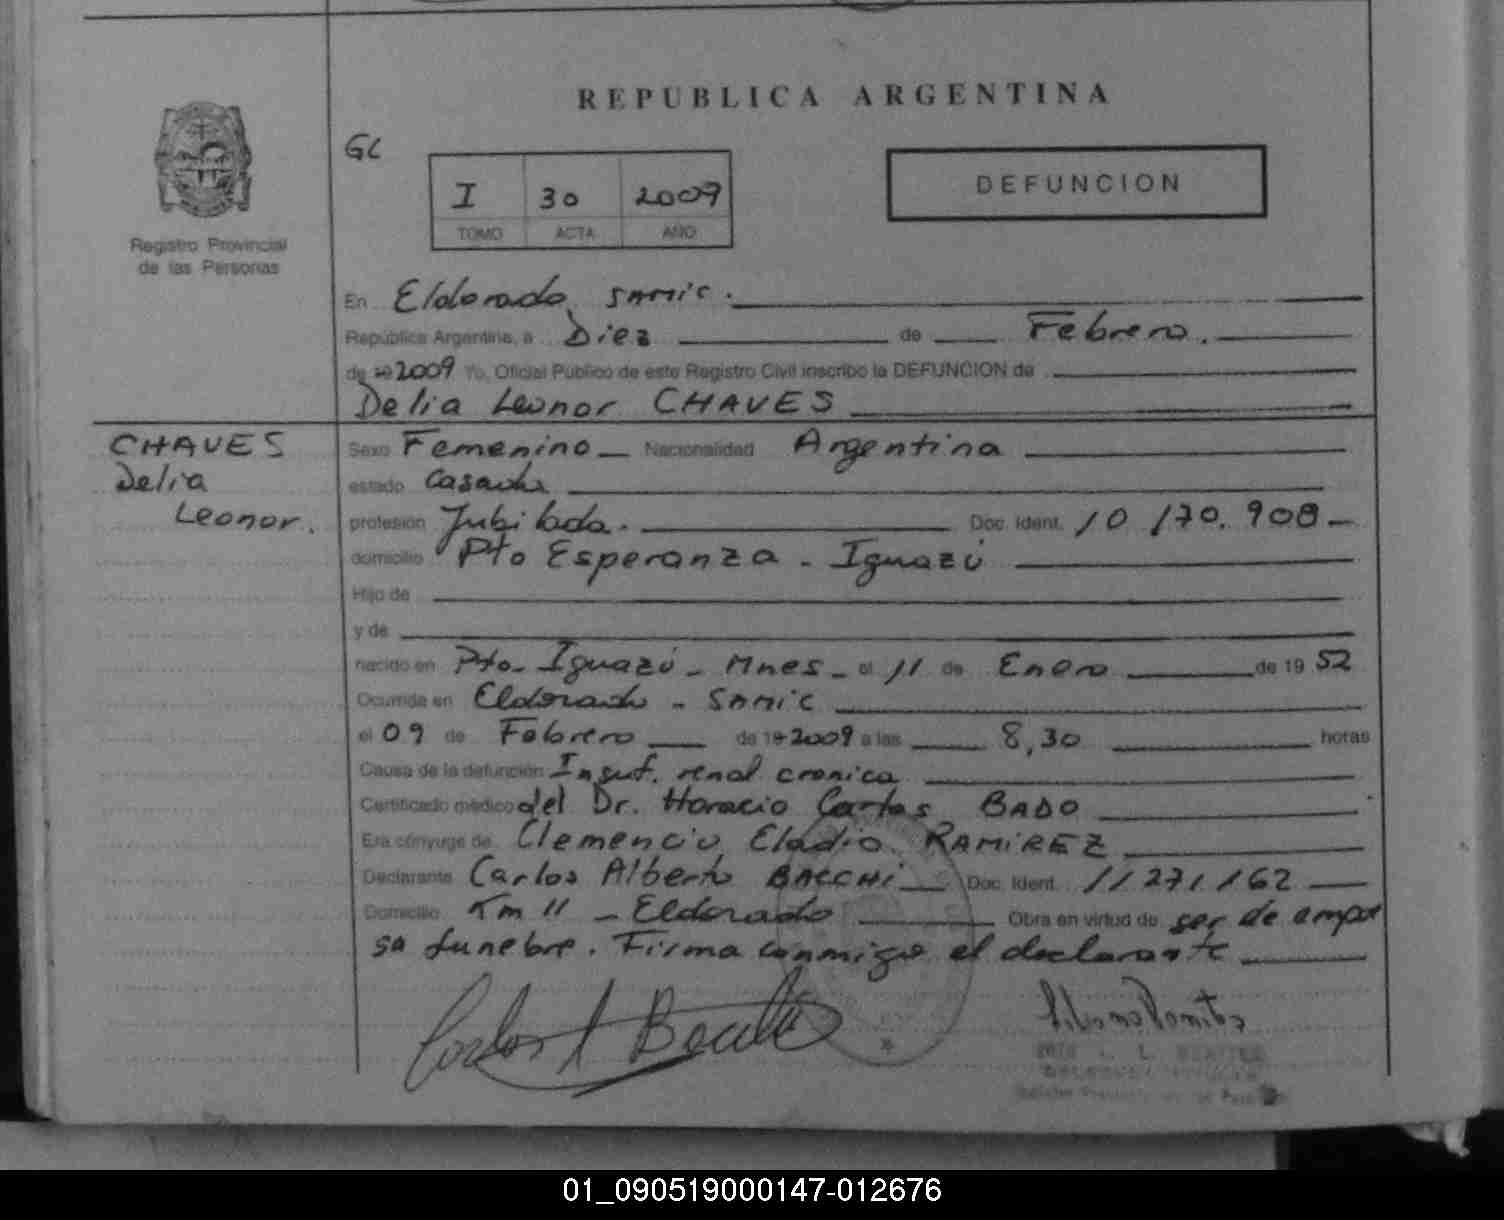 REPUBLICA ARGENTINA
GC
I 30 2009
TOMO ACTA AÑO
DEFUNCION
Registro Provincial
de las Personas
En Eldorado, SAMIC.
República Argentina, a Diez de Febrero.
de 19 2009 Yo, Oficial Público de este Registro Civil inscribo la DEFUNCION de
Delia Leonor CHAVES
CHAVES
Delia
Leonor.
Sexo Femenino Nacionalidad Argentina
estado Casada
profesión Jubilada. Doc. Ident. 10 170.908
domicilio Pto Esperanza - Iguazú
Hijo de
y de
nacido en Pto. Iguazú - Mnes - el 11 de Enero de 19 52
Ocurrida en Eldorado - SAMIC
el 09 de Febrero de 19 2009 a las 8,30 horas
Causa de la defunción Insuf. renal cronica
Certificado médico del Dr. Horacio Carlos BADO
Era cónyuge de Clemencio Eladio RAMIREZ
Declarante Carlos Alberto BACCHI Doc. Ident. 11 271.162
Domicilio Km 11 - Eldorado Obra en virtud de ser de empre
sa funebre. Firma conmigo el declarante
01_090519000147-012676